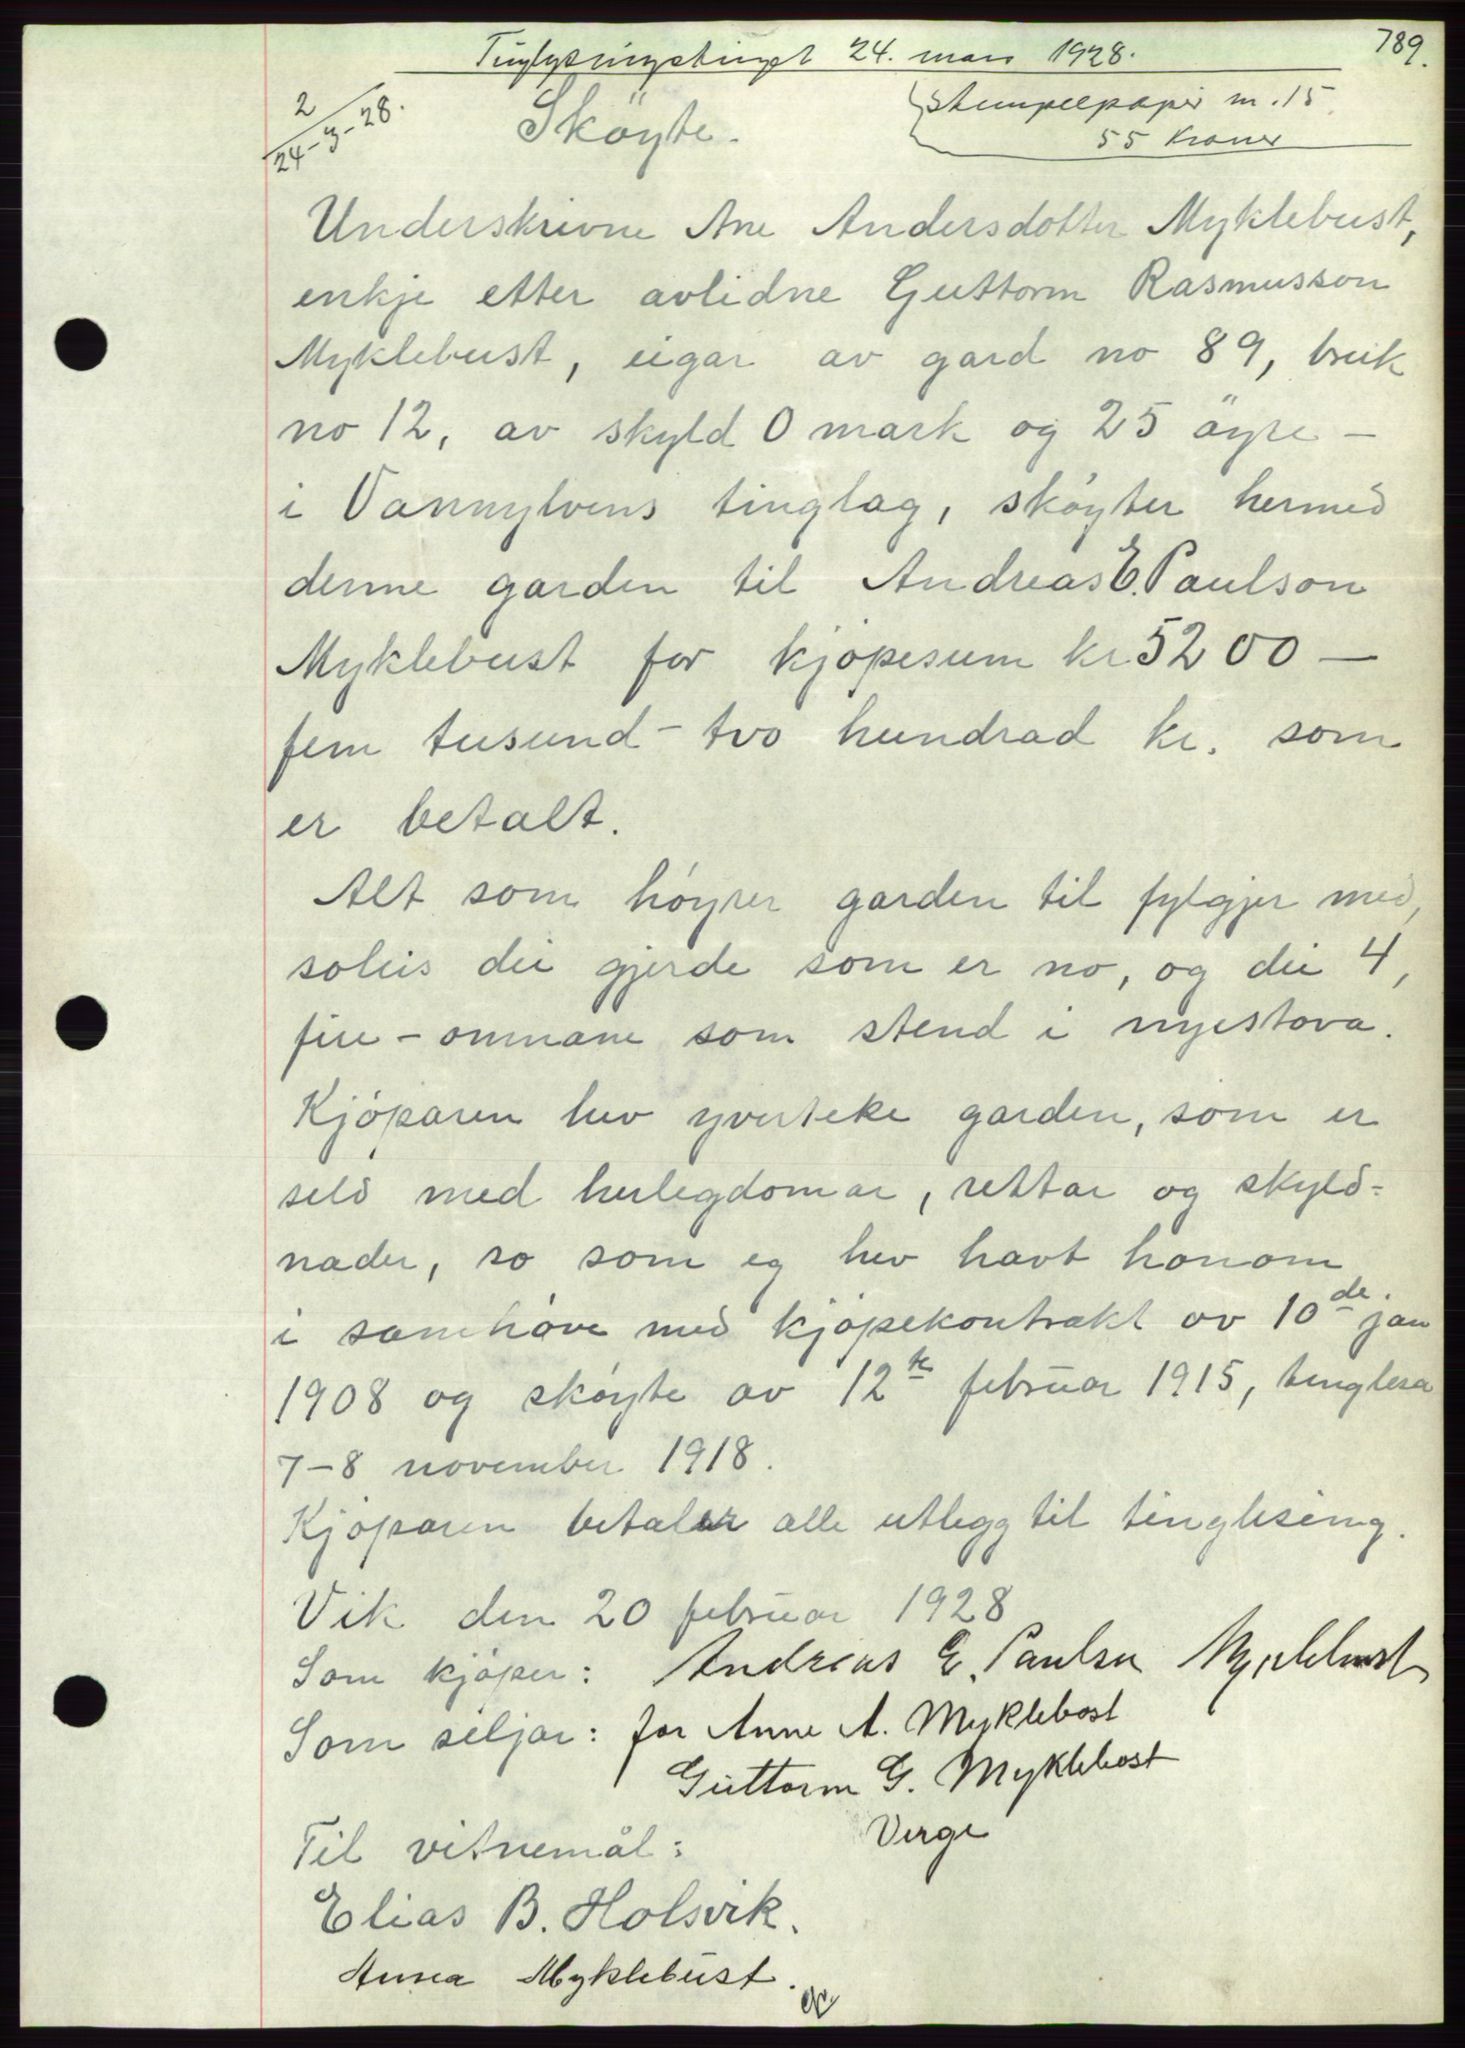 789.
Tinglysningstinget 24. mars 1928.
2
24-3-28.
Stempelpapir m. 15
55 Kroner
Sköyte.
Underskrivne Ane Andersdotter Myklebust,
enkje etter avlidne Guttorm Rasmusson
Myklebust, eigar av gard no 89, bruk
no 12, av skyld 0 mark og 25 öyre -
i Vannylvens tinglag, sköyter hermed
denne garden til Andreas E. Paulson
Myklebust for kjöpesum kr 5200 —
fem tusund - tvo hundrad kr. som
er betalt.
Alt som höyrer garden til fylgjer med,
soleis dei gjerde som er no, og dei 4,
fire - omnane som stend i nyestova.
Kjöparen hev yverteke garden, som er
seld med herlegdomar, rettar og skyld-
nader, so som eg hev havt honom
i samhöve med kjöpekontrakt av 10de. jan
1908 og sköyte av 12te februar 1915, tinglesa
7-8 november 1918.
Kjöparen betaler alle utlegg til tinglesing.
Vik den 20 februar 1928
Som kjöper: Andreas E. Paulsen Myklebust
Som seljar: for Anne A. Myklebost
Guttorm G. Myklebost
Verge
Til vitnemål:
Elias B. Holsvik.
Anna Myklebust.